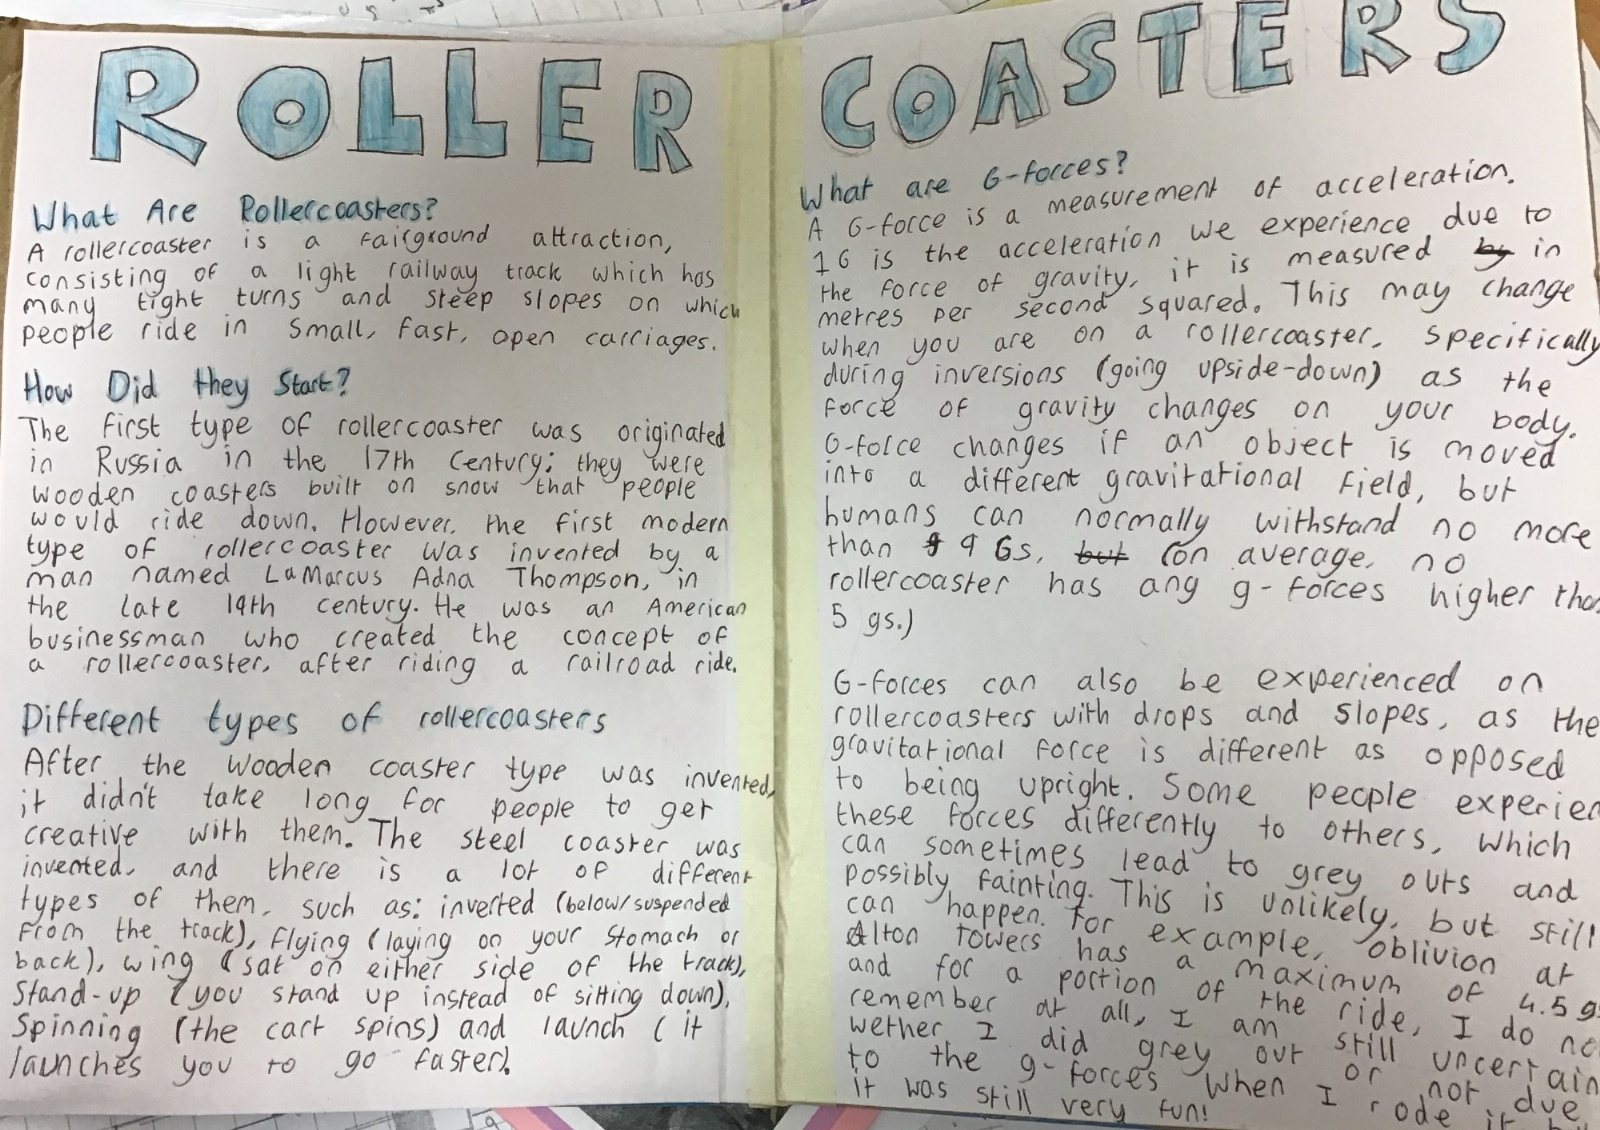 ROLLER COASTERS
What Are Rollercoasters?
A rollercoaster is a fairground attraction,
consisting of a light railway track which has
many tight turns and steep slopes on which
people ride in small, fast, open carriages.
How Did they Start?
The first type of rollercoaster was originated
in Russia in the 17th Century; they were
wooden coasters built on snow that people
would ride down. However, the first modern
type of rollercoaster was invented by a
man named LaMarcus Adna Thompson, in
the late 19th century. He was an American
businessman who created the concept of
a rollercoaster, after riding a railroad ride.
Different types of rollercoasters
After the wooden coaster type was invented,
it didn't take long for people to get
creative with them. The steel coaster was
invented, and there is a lot of different
types of them, such as: inverted (below/suspended
from the track), flying (laying on your stomach or
back), wing (sat on either side of the track),
Stand-up (you stand up instead of sitting down),
Spinning (the cart spins) and launch (it
launches you to go faster).
What are G-forces?
A G-force is a measurement of acceleration.
1G is the acceleration we experience due to
the force of gravity, it is measured by in
metres per second squared. This may change
when you are on a rollercoaster, specifically
during inversions (going upside-down) as the
force of gravity changes on your body.
G-force changes if an object is moved
into a different gravitational field, but
humans can normally withstand no more
than 9 Gs, but (on average, no
rollercoaster has any g-forces higher than
5 gs.)
G-forces can also be experienced on
rollercoasters with drops and slopes, as the
gravitational force is different as opposed
to being upright. Some people experien
these forces differently to others, which
can sometimes lead to grey outs and
possibly fainting. This is unlikely, but still
can happen. For example, oblivion at
Alton Towers has a maximum of 4.5 g
and for a portion of the ride, I do no
remember at all, I am still uncertain
wether I did grey out or not due
to the g-forces when I rode it
it was still very fun!